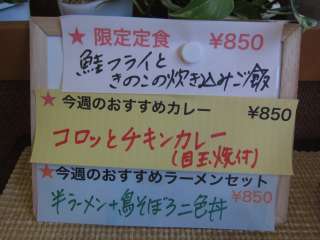 ★ 限定定食 ¥850
鮭フライと
きのこの炊き込みご飯
★ 今週のおすすめカレー ¥850
コロッとチキンカレー
(目玉焼付)
★ 今週のおすすめラーメンセット
¥850
半ラーメン+鳥そぼろ二色丼